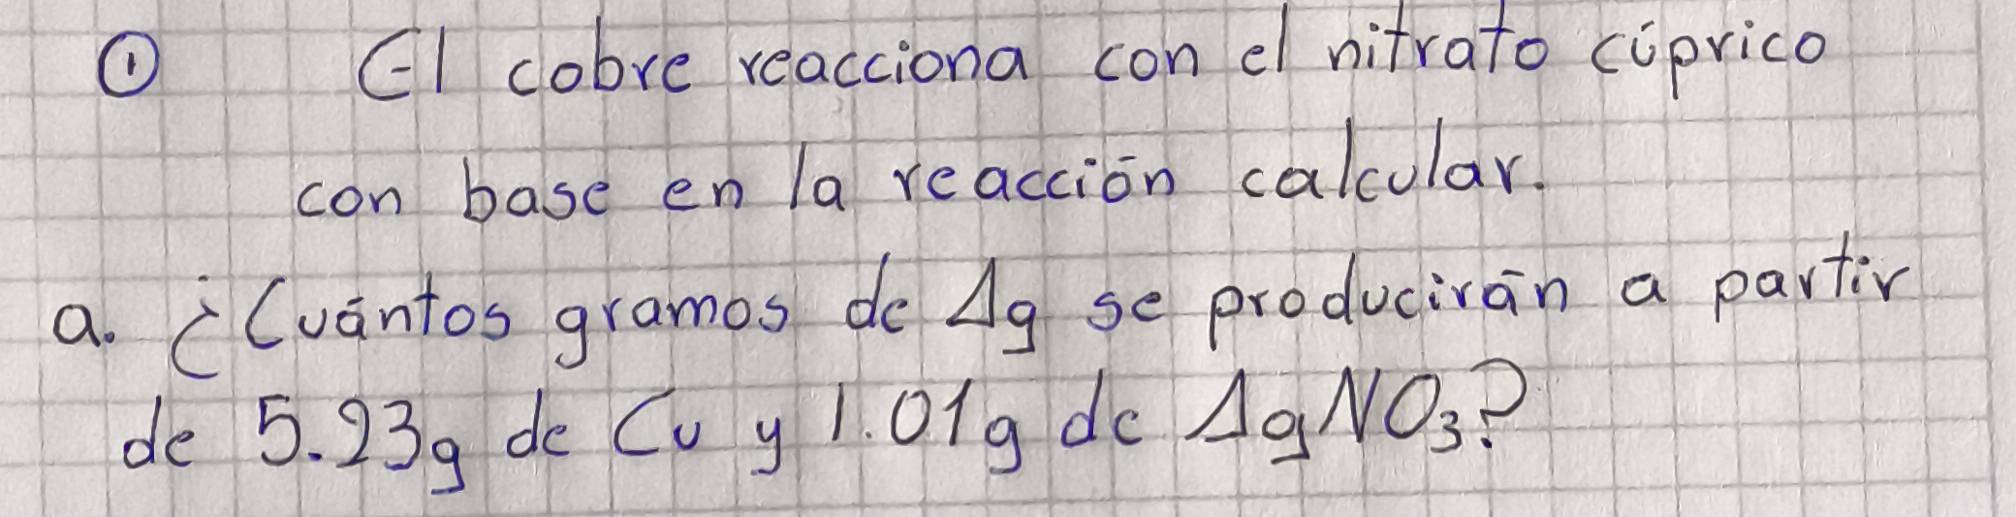 ① El cobre reacciona con el nitrato cúprico
con base en la reacción calcular.
a. ¿Cuántos gramos de Ag se producirán a partir
de 5.23g de Cu y 1.01g de AgNO₃?